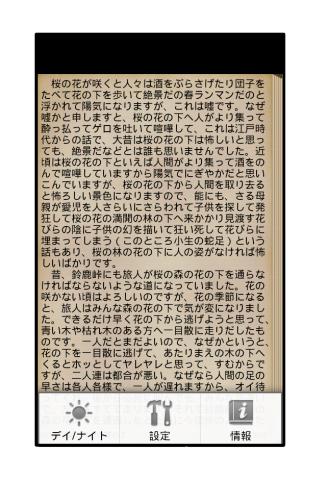 桜の花が咲くと人々は酒をぶらさげたり団子を
たべて花の下を歩いて絶景だの春ランマンだのと
浮かれて陽気になりますが、これは嘘です。なぜ
嘘かと申しますと、桜の花の下へ人がより集って
酔っ払ってゲロを吐いて喧嘩して、これは江戸時
代からの話で、大昔は桜の花の下は怖しいと思っ
ても、絶景だなどとは誰も思いませんでした。近
頃は桜の花の下といえば人間がより集って酒をの
んで喧嘩していますから陽気でにぎやかだと思い
こんでいますが、桜の花の下から人間を取り去る
と怖ろしい景色になりますので、能にも、さる母
親が愛児を人さらいにさらわれて子供を探して発
狂して桜の花の満開の林の下へ来かかり見渡す花
びらの陰に子供の幻を描いて狂い死して花びらに
埋まってしまう（このところ小生の蛇足）という
話もあり、桜の林の花の下に人の姿がなければ怖
しいばかりです。
　昔、鈴鹿峠にも旅人が桜の森の花の下を通らな
ければならないような道になっていました。花の
咲かない頃はよろしいのですが、花の季節になる
と、旅人はみんな森の花の下で気が変になりまし
た。できるだけ早く花の下から逃げようと思って
青い木や枯れ木のある方へ一目散に走りだしたも
のです。一人だとまだよいので、なぜかというと、
花の下を一目散に逃げて、あたりまえの木の下へ
くるとホッとしてヤレヤレと思って、すむからで
すが、二人連は都合が悪い。なぜなら人間の足の
早さは各人各様で、一人が遅れますから、オイ待
デイ/ナイト
設定
情報